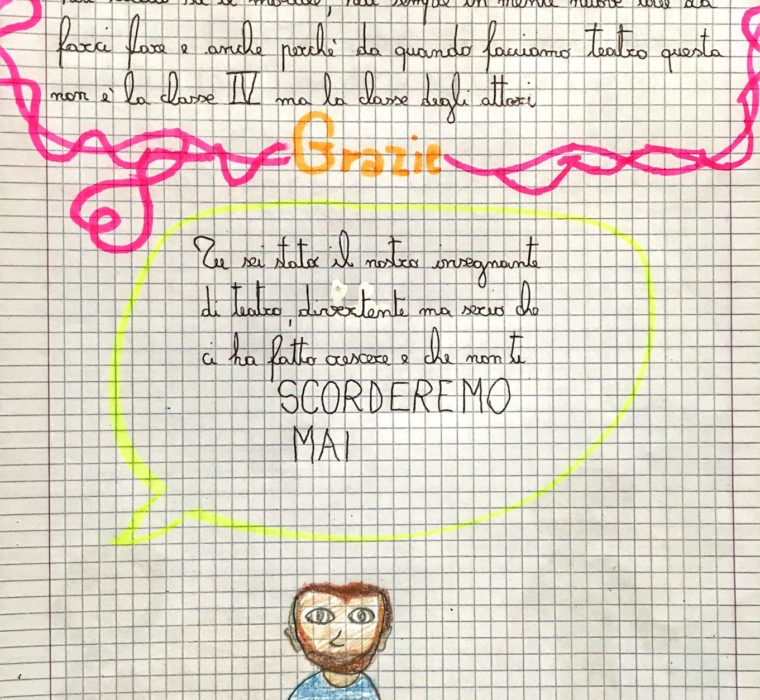 sempre in mente nuove cose da
farci fare e anche perché da quando facciamo teatro questa
non è la classe IV ma la classe degli attori
Grazie
Tu sei stato il nostro insegnante
di teatro, divertente ma serio che
ci ha fatto crescere e che non ti
SCORDEREMO
MAI